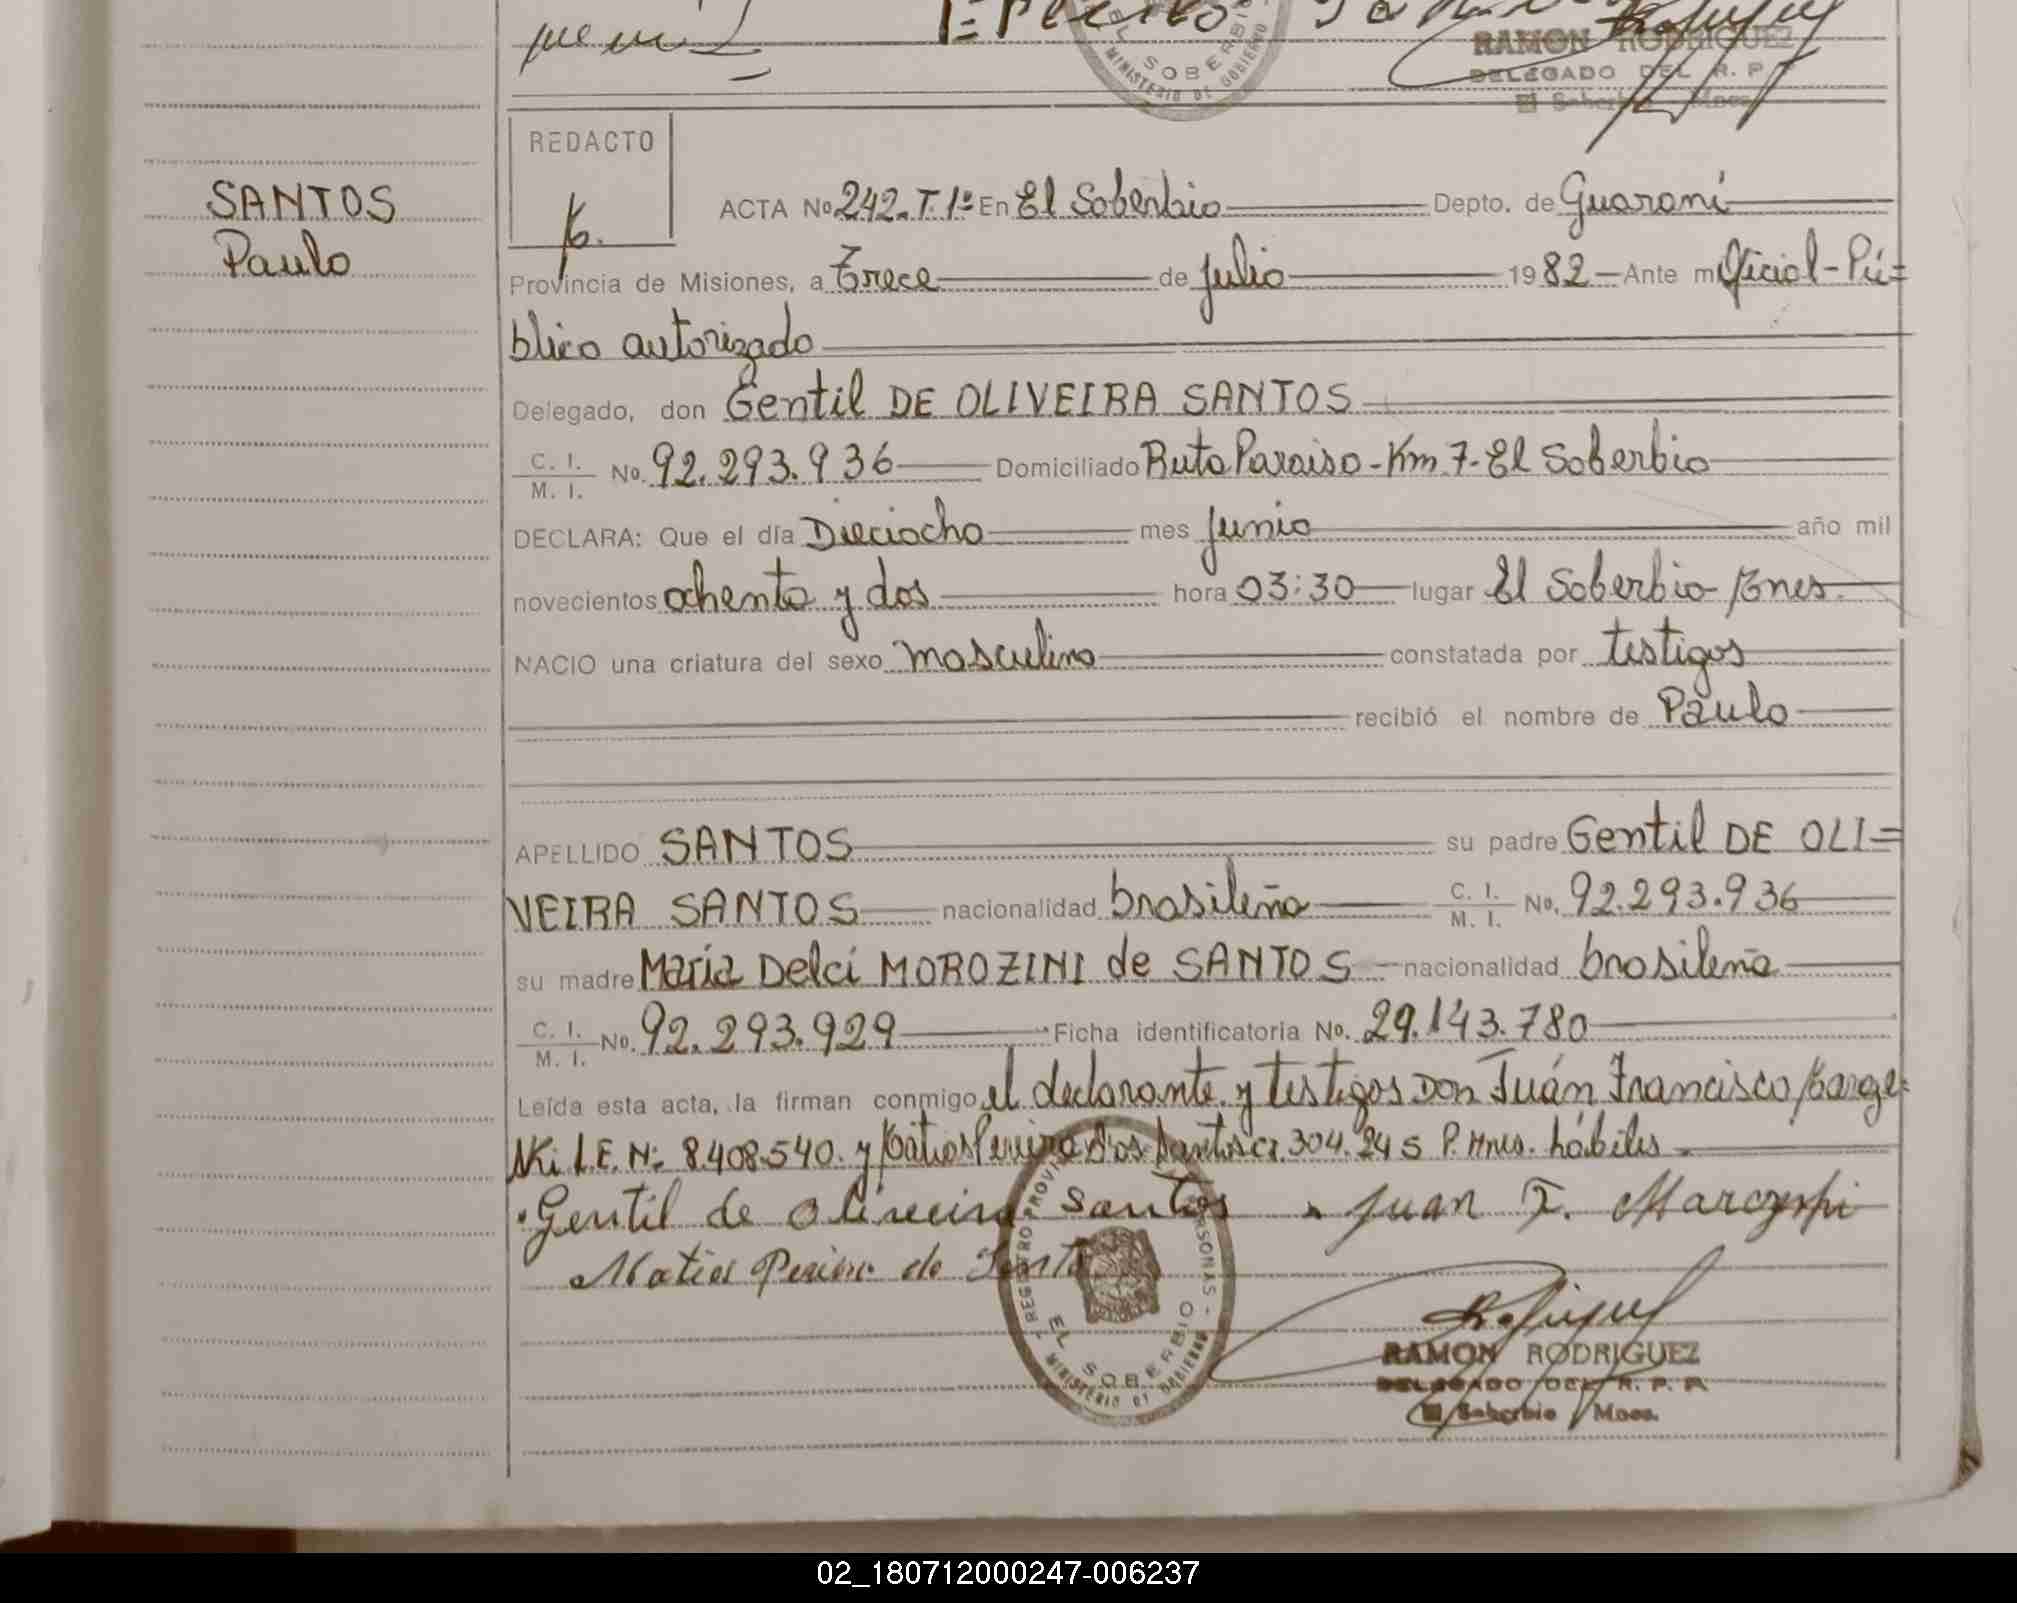 RAMON RODRIGUEZ
DELEGADO DEL R. P.
EL SOBERBIO
MINISTERIO DE GOBIERNO
REDACTO
SANTOS
Paulo
ACTA No 242. T. 1º En El Soberbio Depto. de Guaraní
Provincia de Misiones, a Trece de Julio 1982 Ante mi Oficial-Pú=
blico autorizado
Delegado, don Gentil DE OLIVEIRA SANTOS
C. I. M. I. No. 92.293.936 Domiciliado Ruta Paraiso-Km 7-El Soberbio
DECLARA: Que el día Dieciocho mes Junio año mil
novecientos ochenta y dos hora 03:30 lugar El Soberbio
NACIO una criatura del sexo masculino constatada por testigos
recibió el nombre de Paulo
APELLIDO SANTOS su padre Gentil DE OLI=
VEIRA SANTOS nacionalidad brasileña C. I. M. I. No. 92.293.936
su madre María Delci MOROZINI de SANTOS nacionalidad brasileña
C. I. M. I. No. 92.293.929 Ficha identificatoria No. 29.143.780
Leída esta acta, la firman conmigo el declarante y testigos Don Juán Francisco
L.E. Nº 8.408.540. y Matias Pereira Dos Santos C.I. 304.245 P. Mnes. hábiles
Gentil de Oliveira Santos Juan F.
Matias
EL SOBERBIO
MINISTERIO DE GOBIERNO
RAMON RODRIGUEZ
DELEGADO DEL R. P. P.
El Soberbio Mnes.
02_180712000247-006237